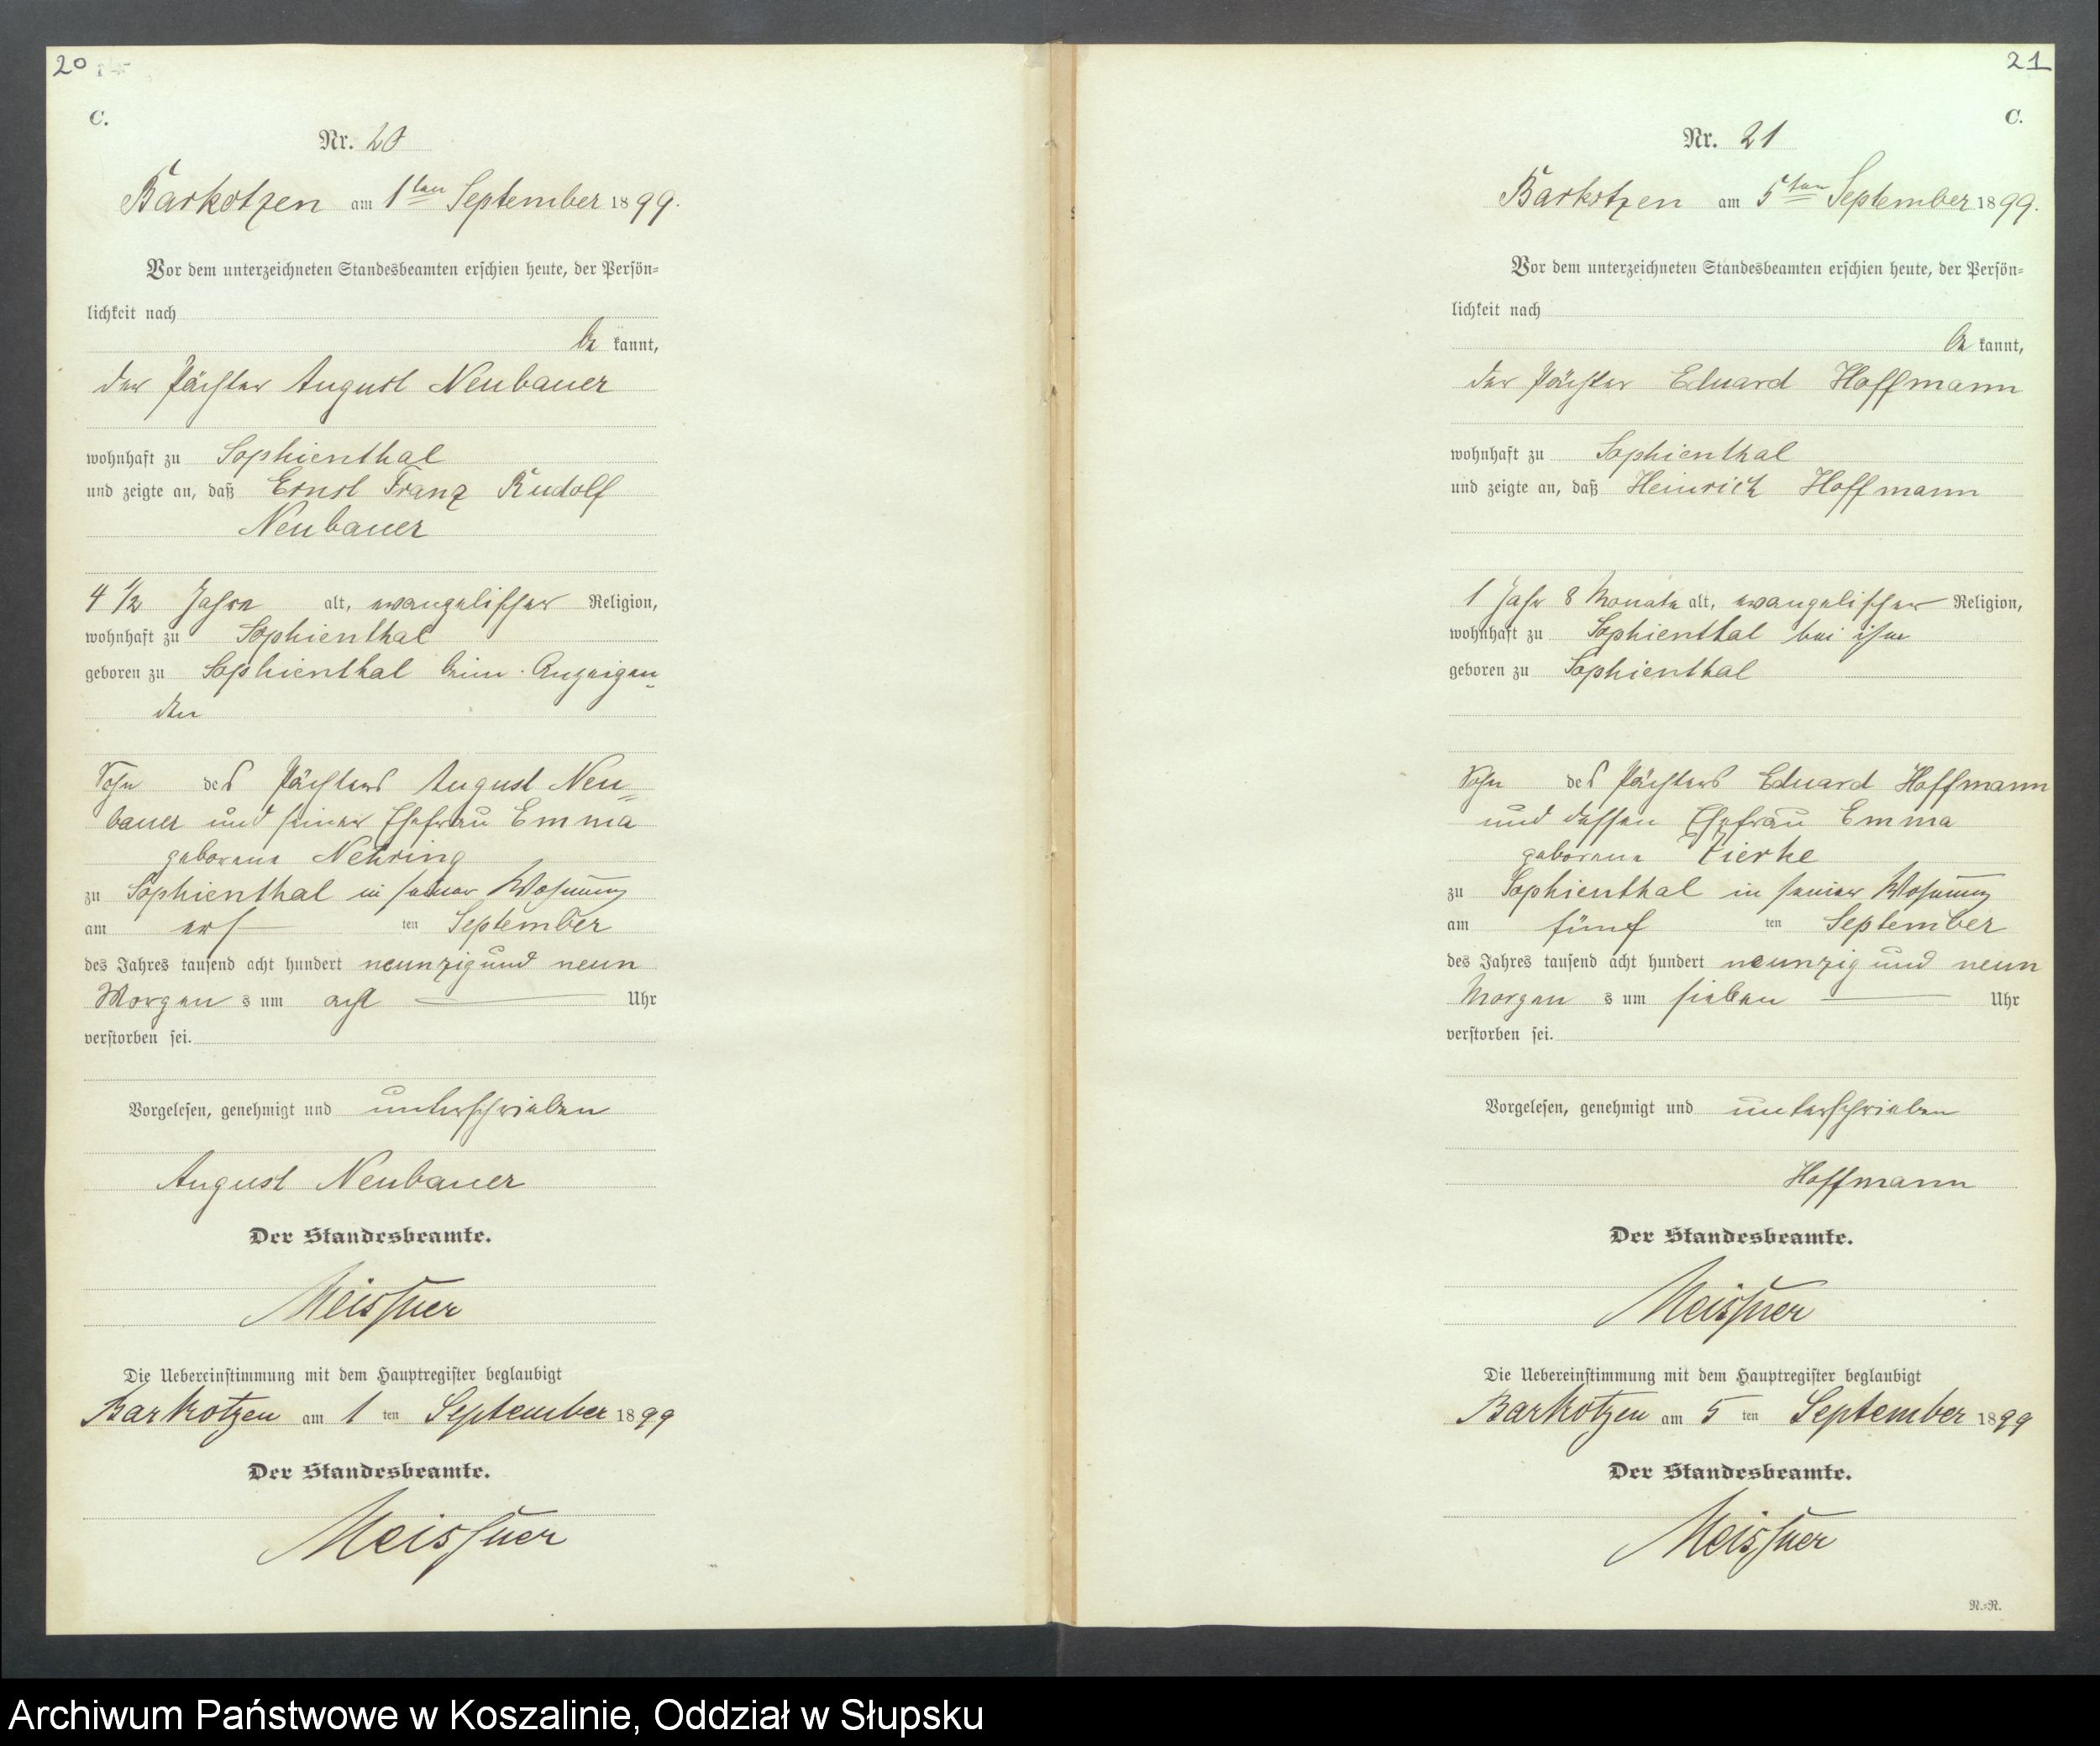 20
C.
Nr. 20
Barkotzen am 1ten September 1899.
Vor dem unterzeichneten Standesbeamten erschien heute, der Persön-
lichkeit nach
be kannt,
der Pächter August Neubauer
wohnhaft zu Sophienthal
und zeigte an, daß Ernst Franz Rudolf
Neubauer
4 1/2 Jahre alt, evangelischer Religion,
wohnhaft zu Sophienthal
geboren zu Sophienthal beim Anzeigen-
den
Sohn des Pächters August Neu-
bauer und seiner Ehefrau Emma
geborene Nehring
zu Sophienthal in seiner Wohnung
am ers ten September
des Jahres tausend acht hundert neunzig und neun
Morgen s um acht Uhr
verstorben sei.
Vorgelesen, genehmigt und unterschrieben
August Neubauer
Der Standesbeamte.
Meissner
Die Uebereinstimmung mit dem Hauptregister beglaubigt
Barkotzen am 1 ten September 1899
Der Standesbeamte.
Meissner
21
C.
Nr. 21
Barkotzen am 5ten September 1899.
Vor dem unterzeichneten Standesbeamten erschien heute, der Persön-
lichkeit nach
be kannt,
der Pächter Eduard Hoffmann
wohnhaft zu Sophienthal
und zeigte an, daß Heinrich Hoffmann
1 Jahr 8 Monate alt, evangelischer Religion,
wohnhaft zu Sophienthal bei ihm
geboren zu Sophienthal
Sohn des Pächters Eduard Hoffmann
und dessen Ehefrau Emma
geborene Zierke
zu Sophienthal in seiner Wohnung
am fünf ten September
des Jahres tausend acht hundert neunzig und neun
Morgen s um sieben Uhr
verstorben sei.
Vorgelesen, genehmigt und unterschrieben
Hoffmann
Der Standesbeamte.
Meissner
Die Uebereinstimmung mit dem Hauptregister beglaubigt
Barkotzen am 5 ten September 1899
Der Standesbeamte.
Meissner
N.=N.
Archiwum Państwowe w Koszalinie, Oddział w Słupsku